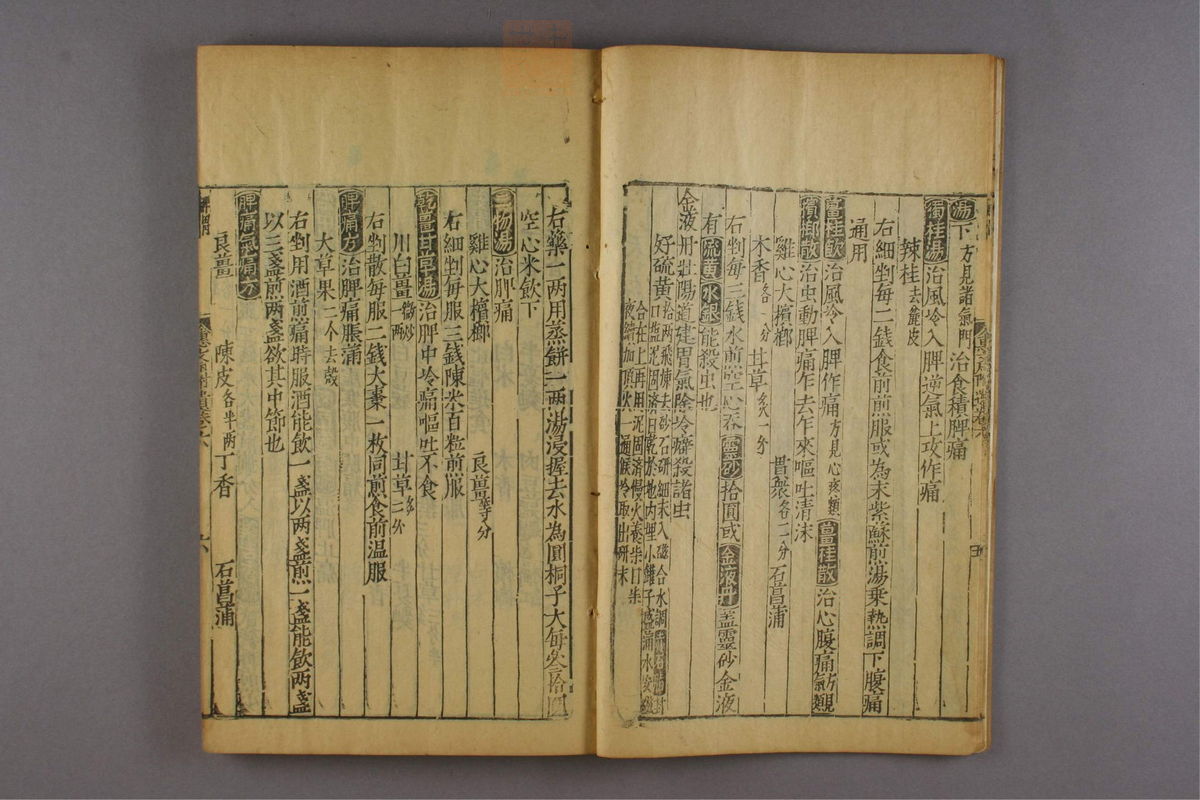 湯下方見諸氣門治食積脾痛
獨桂湯治風冷入脾逆氣上攻作痛
辣桂去麄皮
右細剉每二錢食前煎服或為末紫蘇煎湯乗熱調下腹痛
通用
薑桂飲治風冷入脾作痛方見心疼類薑桂散治心腹痛方見氣類
檳榔散治虫動脾痛乍去乍來嘔吐清沫
雞心大檳榔 貫衆各二分 石菖蒲
木香各一分 甘草炙一分
右剉每三錢水煎空心吞靈砂拾圓或金液丹盖靈砂金液
有硫黄水銀能殺虫也
金液丹壯陽道建胃氣除冷癖殺諸虫
好硫黄拾兩飛煉去砂石研細末入磁合水調
合在上再用泥固濟慢火養柒日柒
夜候加頂火一通候冷取出研末
右藥一兩用蒸餅一兩湯浸握去水為圓桐子大每叁拾圓
空心米飲下
二物湯治脾痛
雞心大檳榔 良薑等分
右細剉每服三錢陳米百粒煎服
乾薑甘草湯治脾中冷痛嘔吐不食
川白薑微炒一兩 甘草炙二分
右剉散每服二錢大棗一枚同煎食前温服
脾痛方治脾痛脹滿
大草果二个去殻
右剉用酒煎痛時服酒能飲一盞以两盞煎一盞能飲两盞
以三盞煎两盞欲其中節也
脾痛氣痛方
良薑 陳皮各半两 丁香 石菖蒲